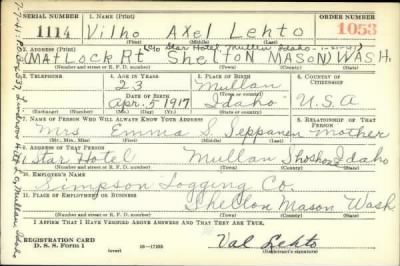 SERIAL NUMBER 1. NAME (Print) ORDER NUMBER
1114 Vilho Axel Lehto 1053
(First) (Middle) (Last)
2. ADDRESS (Print) (c/o Star Hotel, Mullan Idaho
(MATLOCK RT SHELTON MASON) WASH.
(Number and street or R. F. D. number) (Town) (County) (State)
3. TELEPHONE 4. AGE IN YEARS 5. PLACE OF BIRTH 6. COUNTRY OF CITIZENSHIP
23 Mullan
DATE OF BIRTH (Town or county)
Apr. 5 1917 Idaho U.S.A
(Exchange) (Number) (Mo.) (Day) (Yr.) (State or country)
7. NAME OF PERSON WHO WILL ALWAYS KNOW YOUR ADDRESS 8. RELATIONSHIP OF THAT PERSON
Mrs Emma S. Seppanen Mother
(Mr., Mrs., Miss) (First) (Middle) (Last)
9. ADDRESS OF THAT PERSON
Star Hotel Mullan Shoshone Idaho
(Number and street or R. F. D. number) (Town) (County) (State)
10. EMPLOYER'S NAME
Simpson Logging Co.
11. PLACE OF EMPLOYMENT OR BUSINESS
Shelton Mason Wash
(Number and street or R. F. D. number) (Town) (County) (State)
I AFFIRM THAT I HAVE VERIFIED ABOVE ANSWERS AND THAT THEY ARE TRUE.
REGISTRATION CARD
D. S. S. Form 1 (over) 16—17105 Val Lehto
(Registrant's signature)